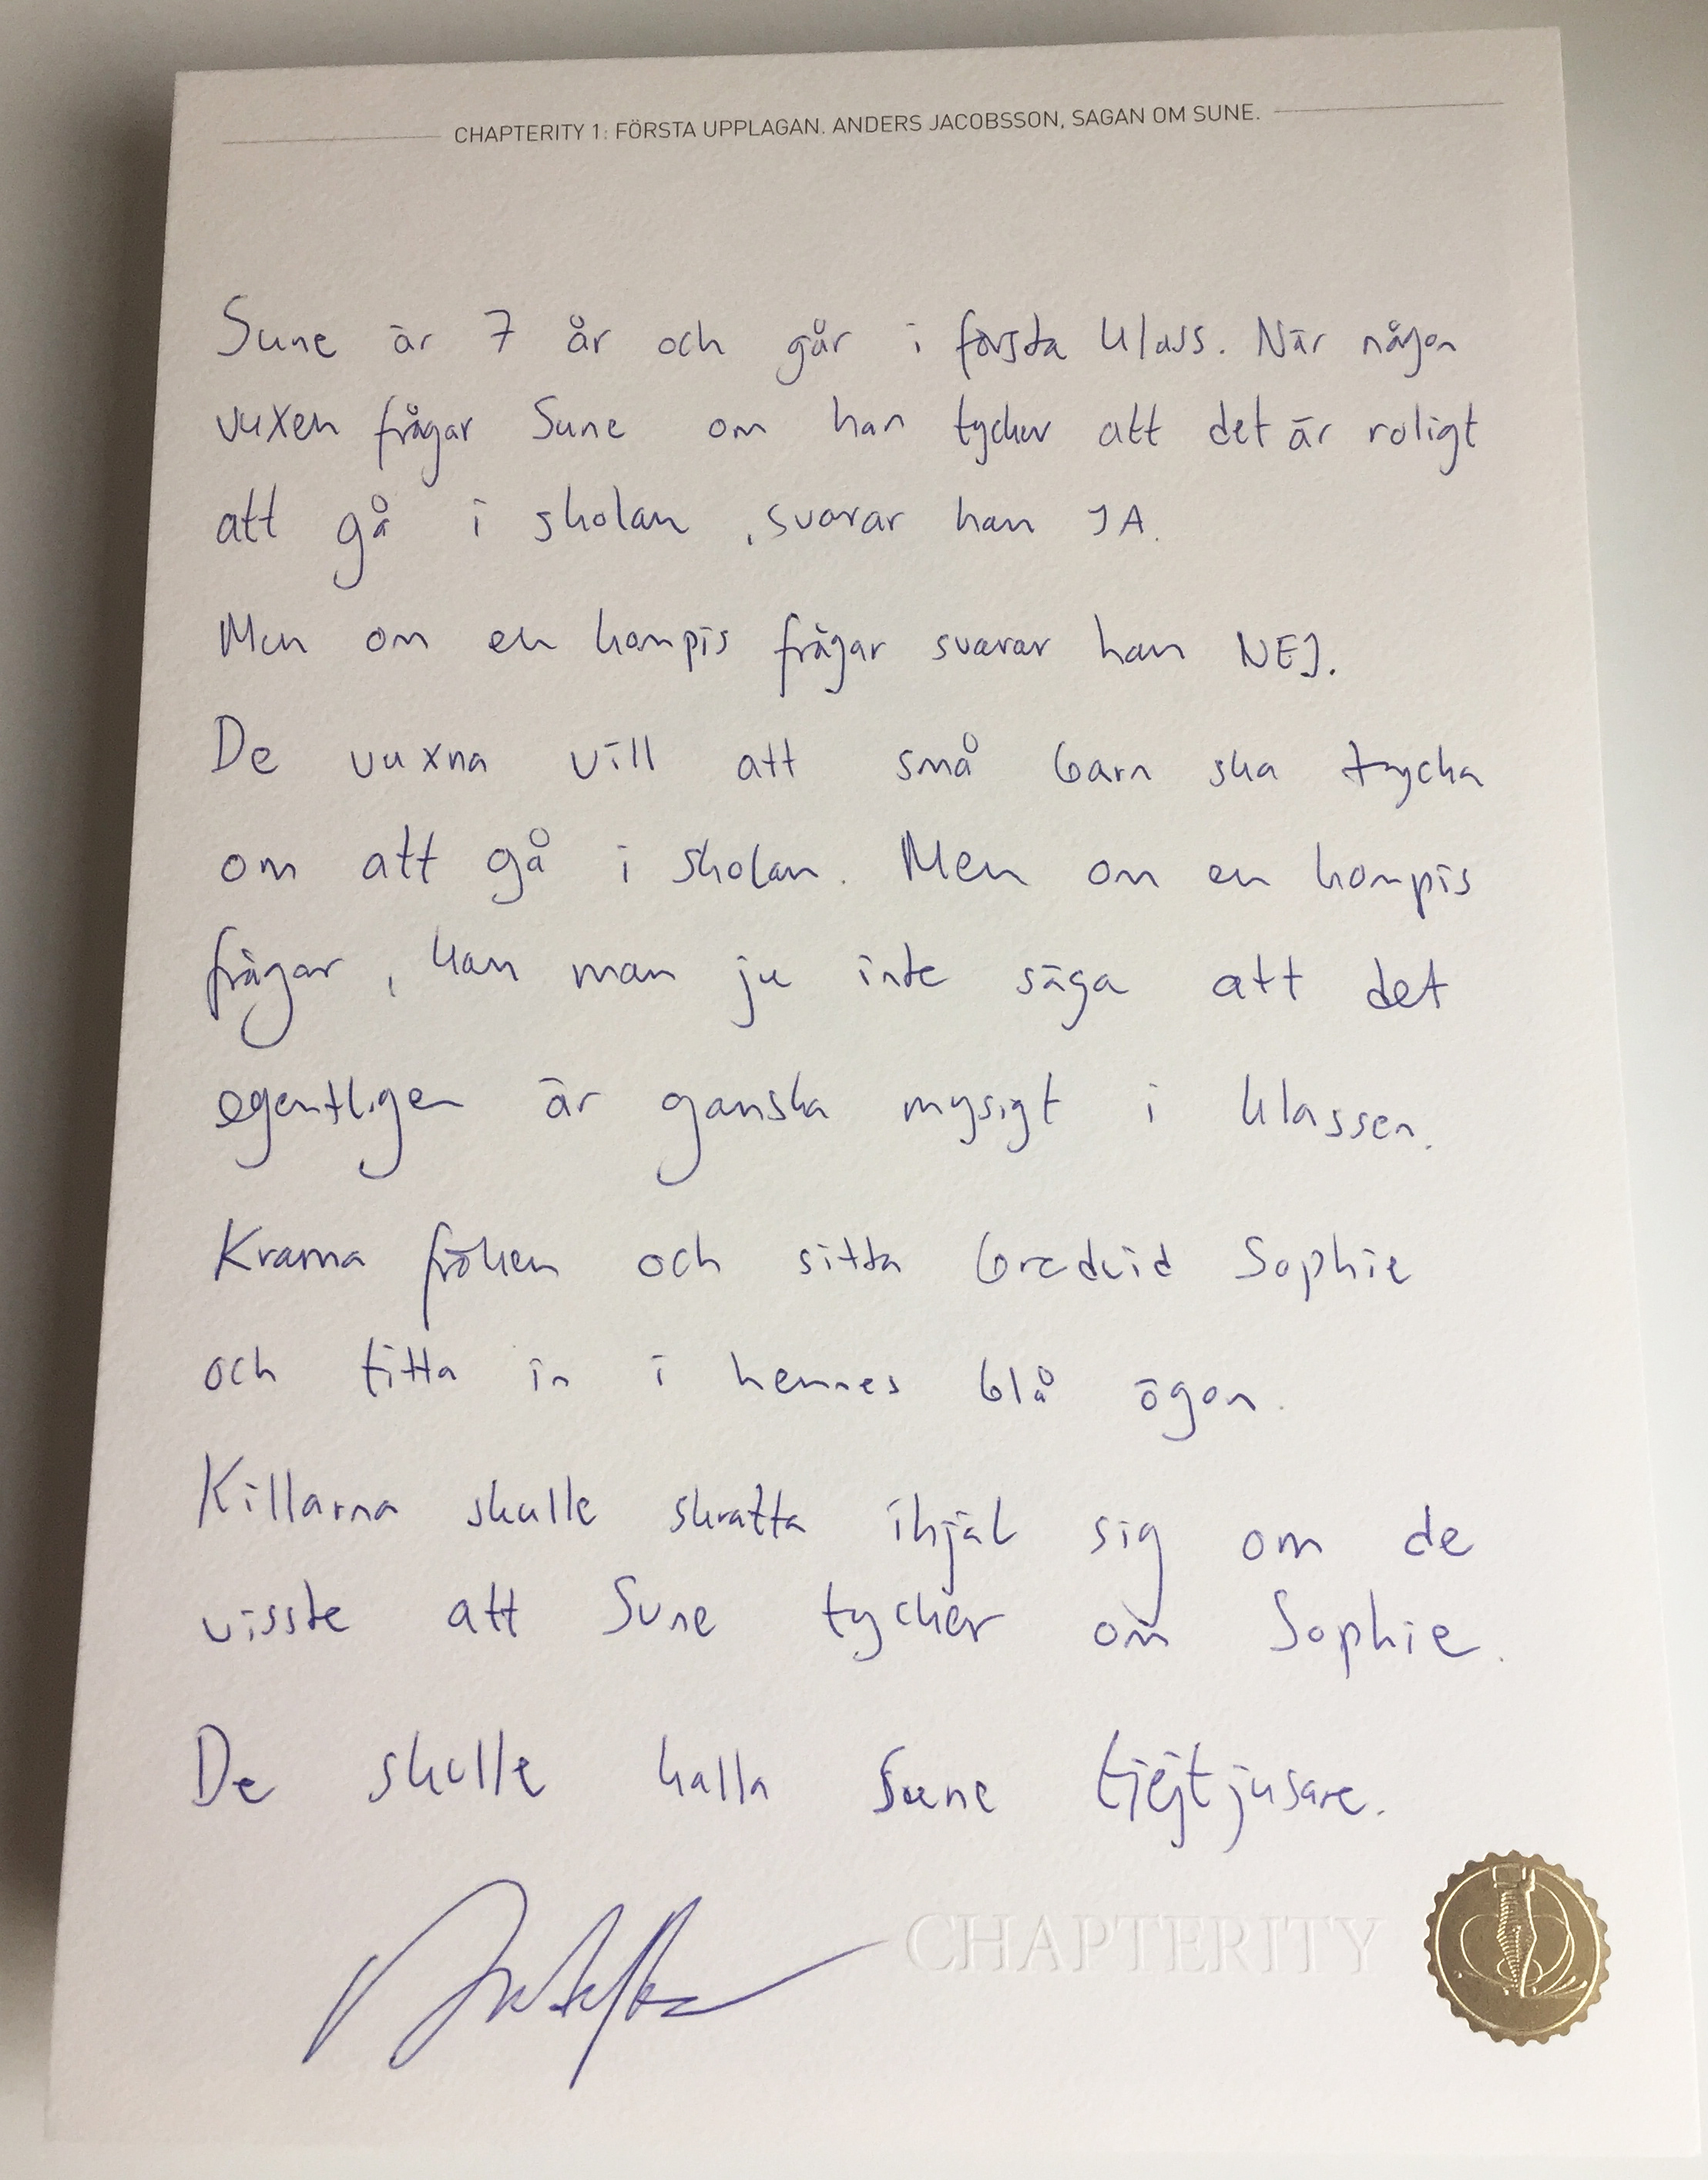 CHAPTERITY 1: FÖRSTA UPPLAGAN. ANDERS JACOBSSON, SAGAN OM SUNE.
Sune är 7 år och går i första klass. När någon
vuxen frågar Sune om han tycker att det är roligt
att gå i skolan, svarar han JA.
Men om en kompis frågar svarar han NEJ.
De vuxna vill att små barn ska tycka
om att gå i skolan. Men om en kompis
frågar, kan man ju inte säga att det
egentligen är ganska mysigt i klassen.
Krama fröken och sitta bredvid Sophie
och titta in i hennes blå ögon.
Killarna skulle skratta ihjäl sig om de
visste att Sune tycker om Sophie.
De skulle kalla Sune tjejtjusare.
CHAPTERITY